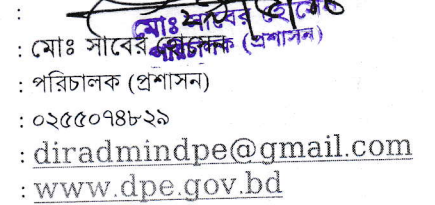 :
মোঃ সাবের হোসেন
পরিচালক (প্রশাসন)
: মোঃ সাবের হোসেন
: পরিচালক (প্রশাসন)
: ০২৫৫০৭৪৮২৯
: diradmindpe@gmail.com
: www.dpe.gov.bd